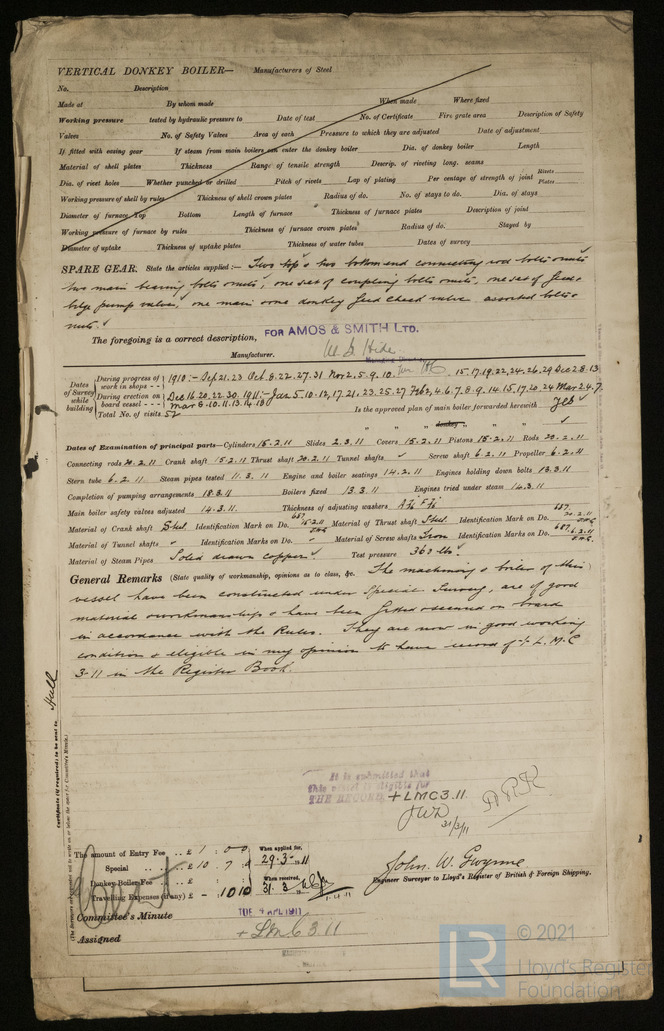 VERTICAL DONKEY BOILER— Manufacturers of Steel
No. Description
Made at By whom made When made Where fixed
Working pressure tested by hydraulic pressure to Date of test No. of Certificate Fire grate area Description of Safety
Valves No. of Safety Valves Area of each Pressure to which they are adjusted Date of adjustment
If fitted with easing gear If steam from main boilers can enter the donkey boiler Dia. of donkey boiler Length
Material of shell plates Thickness Range of tensile strength Descrip. of riveting long. seams
Dia. of rivet holes Whether punched or drilled Pitch of rivets Lap of plating Per centage of strength of joint Rivets Plates
Working pressure of shell by rules Thickness of shell crown plates Radius of do. No. of stays to do. Dia. of stays
Diameter of furnace Top Bottom Length of furnace Thickness of furnace plates Description of joint
Working pressure of furnace by rules Thickness of furnace crown plates Radius of do. Stayed by
Diameter of uptake Thickness of uptake plates Thickness of water tubes Dates of survey
SPARE GEAR. State the articles supplied:— Two top & two bottom end connecting rod bolts & nuts
two main bearing bolts & nuts, one set of coupling bolts & nuts, one set of feed &
bilge pump valves, one main & one donkey feed check valve assorted bolts &
nuts.
The foregoing is a correct description,
FOR AMOS & SMITH LTD.
Manufacturer.
Dates of Survey while building
During progress of work in shops - - 1910:- Sep 21.23 Oct 8.22.27.31 Nov 2.5.9.10 15.17.19.22.24.26.29 Dec 2.8.13
During erection on board vessel - - - Dec 16.20.22.30. 1911:- Jan 5.10.12.17.21.23.25.27 Feb 2,4.6.7.8.9.14.15.17.20.24 Mar 2.4.7.
Mar 8.10.11.13.14.18
Total No. of visits 52
Is the approved plan of main boiler forwarded herewith Yes
" " " donkey " " "
Dates of Examination of principal parts—Cylinders 15.2.11 Slides 2.3.11 Covers 15.2.11 Pistons 15.2.11 Rods 20.2.11
Connecting rods 20.2.11 Crank shaft 15.2.11 Thrust shaft 20.2.11 Tunnel shafts ✓ Screw shaft 6.2.11 Propeller 6.2.11
Stern tube 6.2.11 Steam pipes tested 11.3.11 Engine and boiler seatings 14.2.11 Engines holding down bolts 13.3.11
Completion of pumping arrangements 18.3.11 Boilers fixed 13.3.11 Engines tried under steam 14.3.11
Main boiler safety valves adjusted 14.3.11. Thickness of adjusting washers
Material of Crank shaft Steel. Identification Mark on Do. 687 15.2.11 Material of Thrust shaft Steel. Identification Mark on Do. 687. 20.2.11
Material of Tunnel shafts ✓ Identification Marks on Do. ✓ Material of Screw shafts Iron Identification Marks on Do. 687. 6.2.11
Material of Steam Pipes Solid drawn copper ✓ Test pressure 360 lbs ✓
General Remarks (State quality of workmanship, opinions as to class, &c. The machinery & boiler of this
vessel have been constructed under Special Survey, are of good
material & workmanship & have been fitted & secured on board
in accordance with the Rules. They are now in good working
condition & eligible in my opinion to have record of + L.M.C
3-11 in the Register Book.
Certificate (if required) to be sent to Hull
(The Surveyors are requested not to write on or below the space for Committee's Minute.)
It is submitted that
this vessel is eligible for
THE RECORD + LMC 3.11
31/3/11
The amount of Entry Fee .. £ 1 : 0 : 0 When applied for,
Special .. .. £ 10 : 7 : 29.3.11
Donkey Boiler Fee .. £ : : When received,
Travelling Expenses (if any) £ - 10 10 31.3.11
John W. Gwynne
Engineer Surveyor to Lloyd's Register of British & Foreign Shipping.
Committee's Minute TUE. 4 APL 1911
Assigned + LMC 3.11
LR © 2021
Lloyd's Register
Foundation